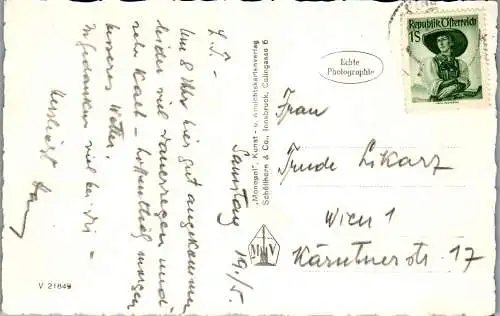 L. T. -
Um 8 Uhr hier gut angekommen
leider viel Dauerregen und
sehr kalt - hoffentlich morgen
besseres Wetter.
In Gedanken viel bei Dir -
Herzlichst
Samstag 19./5.
"Monopol", Kunst- u. Ansichtskartenverlag
Schöllhorn & Co., Innsbruck, Colingasse 6
MV
V 21849
Echte
Photographie
Republik Österreich
1S
Frau
Trude Likarz
Wien 1
Kärntnerstr. 17